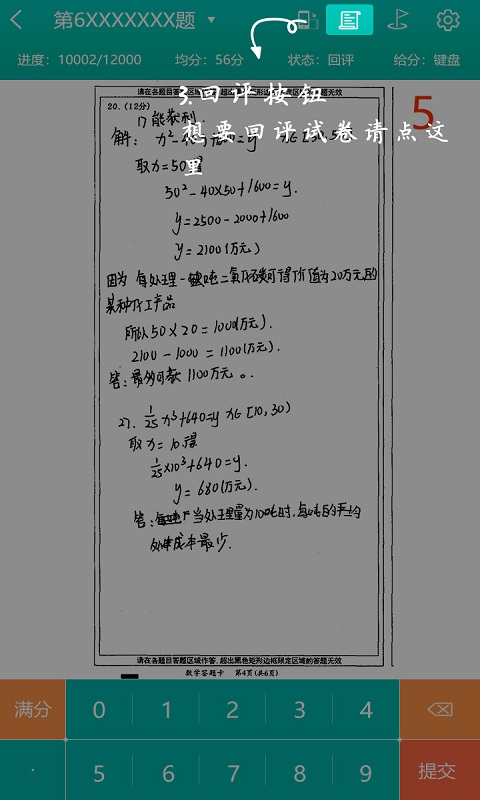 第6XXXXXXX题
进度：10002/12000 均分：56分 状态：回评 给分：键盘
请在各题目答题区域作答，超出黑色矩形边框限定区域的答题无效
3.回评按钮
想要回评试卷请点这
里
5
20.（12分）
1) 能获利.
解：
取x=50得
50²-40×50+1600=y.
y=2500-2000+1600
y=2100(万元)
因为 每处理一吨二氧化碳可得价值为20万元的
某种化工产品
所以50×20=1000(万元).
2100-1000=1100(万元).
答：最多可获1100万元。
2). 1/25 x³+640=y x∈[10,30)
取x=10得
1/25×10³+640=y.
y=680(万元).
答：当处理量为10吨时,每吨的平均
处理成本最少.
请在各题目答题区域作答，超出黑色矩形边框限定区域的答题无效
数学答题卡 第4页(共6页)
满分 0 1 2 3 4
· 5 6 7 8 9 提交